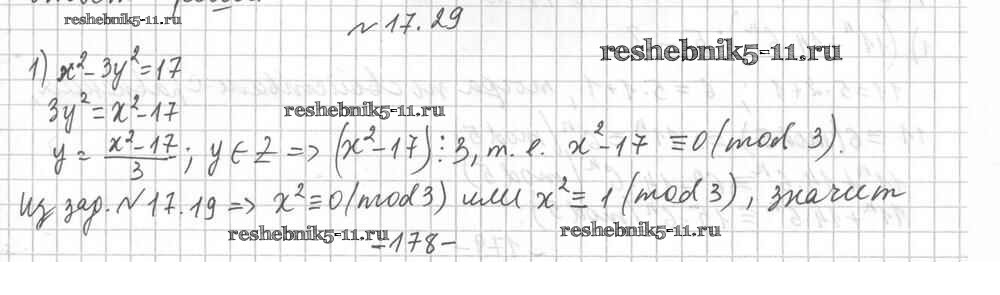 reshebnik5-11.ru
№ 17.29
reshebnik5-11.ru
1) x² - 3y² = 17
3y² = x² - 17
reshebnik5-11.ru
y = (x² - 17)/3 ; y ∈ Z => (x² - 17) ⋮ 3, т. е. x² - 17 ≡ 0 (mod 3).
Из зад. № 17.19 => x² ≡ 0 (mod 3) или x² ≡ 1 (mod 3), значит
reshebnik5-11.ru
reshebnik5-11.ru
- 178 -